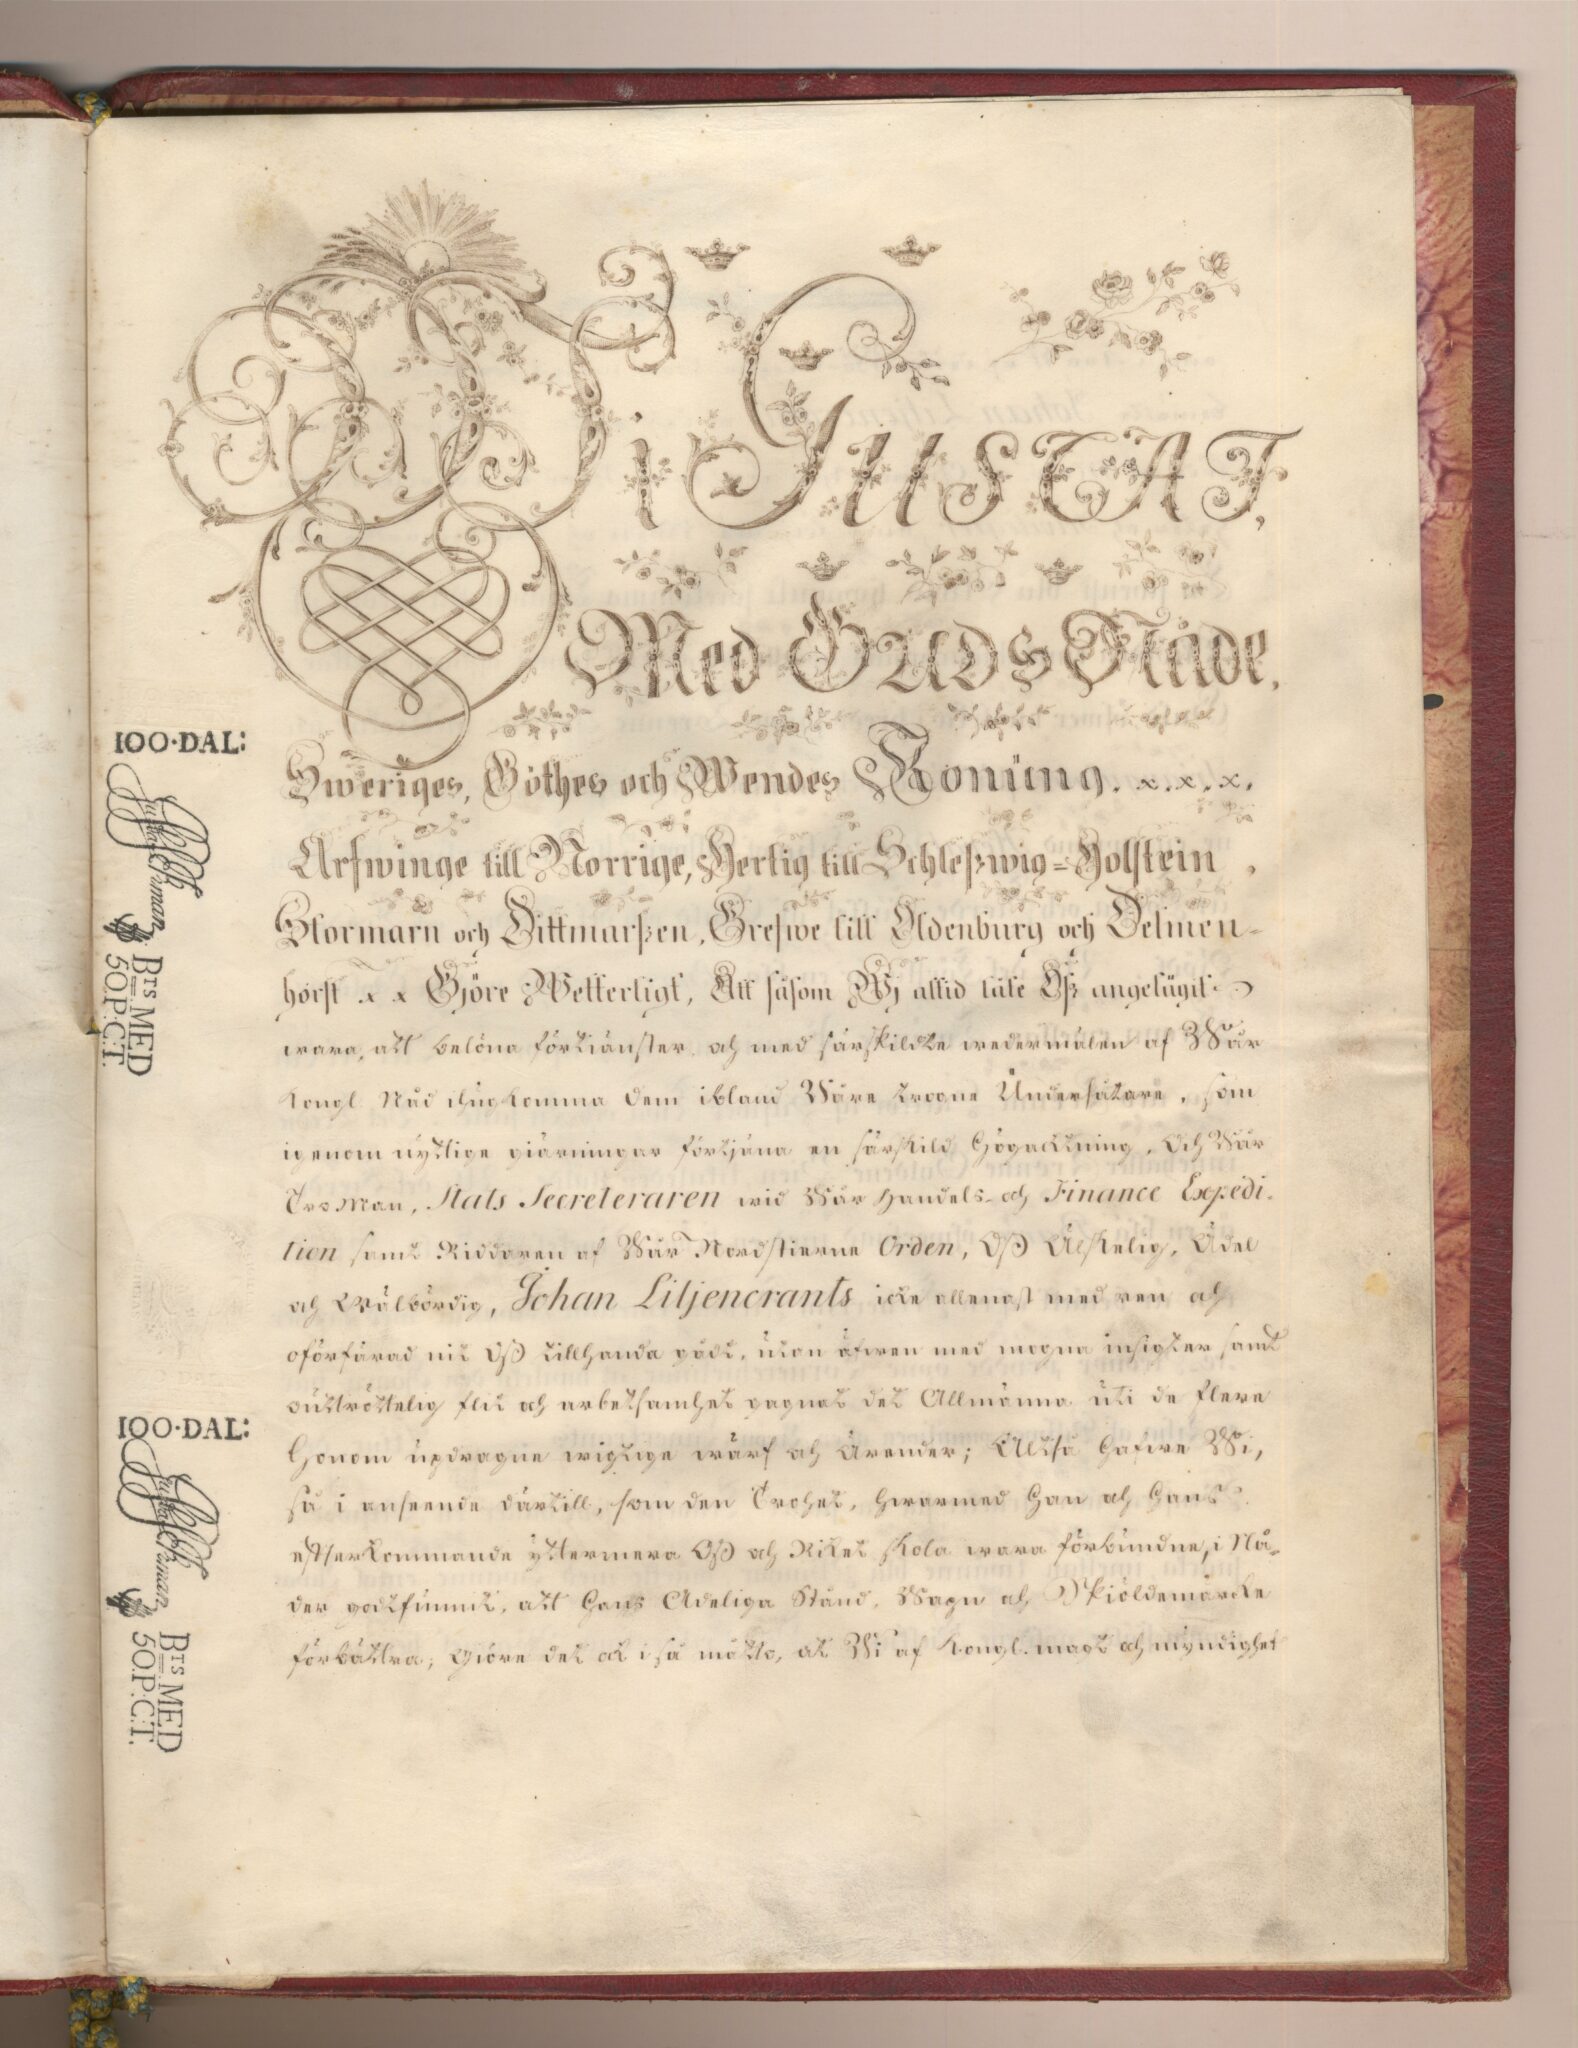 Wi Gustaf,
Med Guds Nåde,
Sweriges, Göthes och Wendes Konung. x. x. x.
Arfwinge till Norrige, Hertig till Schleßwig=Holstein,
Stormarn och Dittmarßen, Grefwe till Oldenburg och Delmen-
horst x x Giöre Wetterligt, Att såsom Wj altid låte Oß angelägit
wara, att belöna förtiänster och med särskildte wedermälen af Wår
Kongl. Nåd ihugkomma dem ibland Våre trogne Undersåtare, som
igenom nyttige giärningar förtjäna en särskild Högacktning, Och Vår
Tro Man, Stats Secreteraren wid Vår Handels- och Finance Expedi-
tion samt Riddaren af Vår Nordstierne Orden, Oß Älskelig, Ädel
och Wälbördig, Johan Liljencrants icke allenast med ren och
oförfärad nit Oß tillhanda gådt, utan äfwen med mogna insigter samt
outtröttelig flit och arbetsamhet gagnat det Allmänna uti de flere
Honom updragne wigtige wärf och Ärender; Altså hafwe Wi,
så i anseende därtill, som den Trohet, hwarmed Han och Hans
efterkommande yttermera Oß och Riket skola wara förbundne, i Nå-
der godtfunnit, att Hans Adeliga Stånd, Wapn och Skiöldemärcke
förbättra; Giöre det ock i så måtto, at Wi af Kongl. magt och myndighet
100·DAL:
Brs MED
50.P:C:T.
100·DAL:
Brs MED
50.P:C:T.